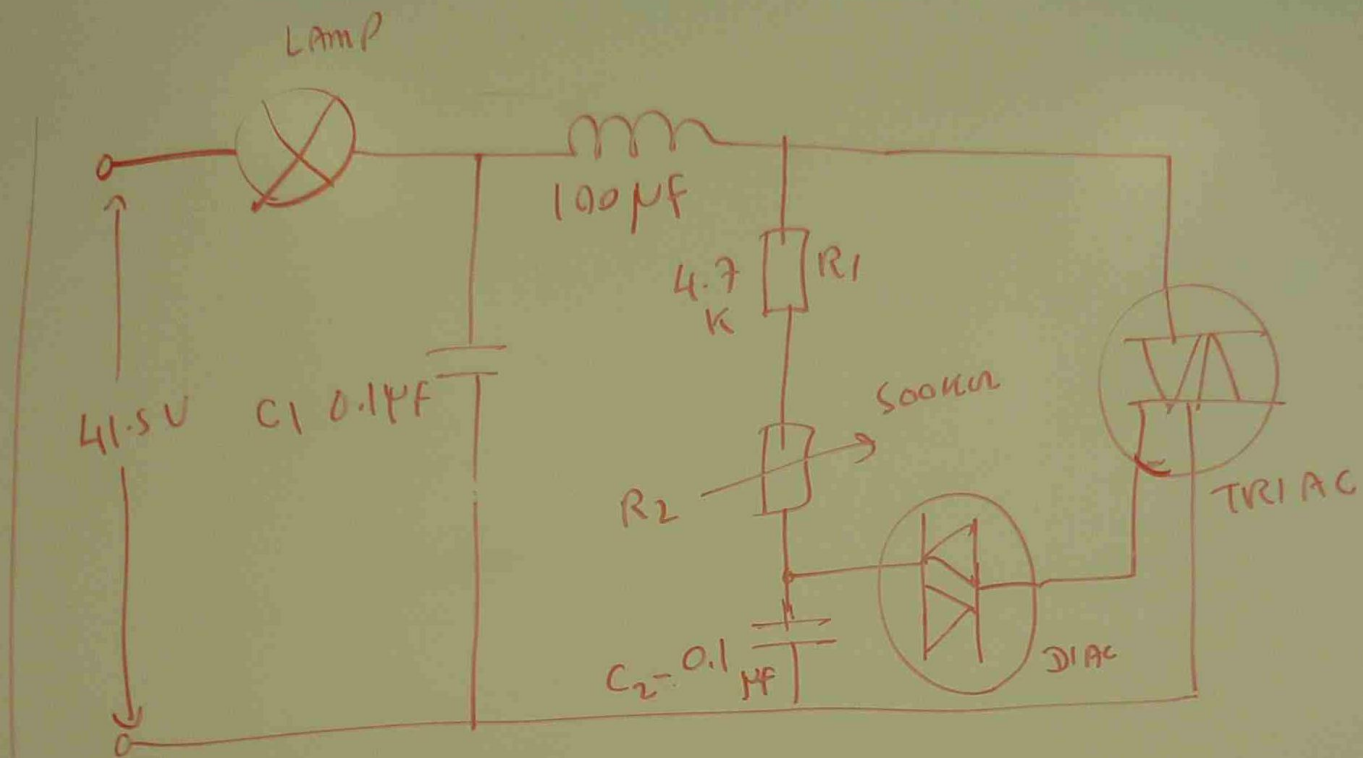 LAMP
100 μF
4.7
K
R1
41.5V
C1 0.1μF
500KΩ
R2
TRIAC
C2 - 0.1
μF
DIAC